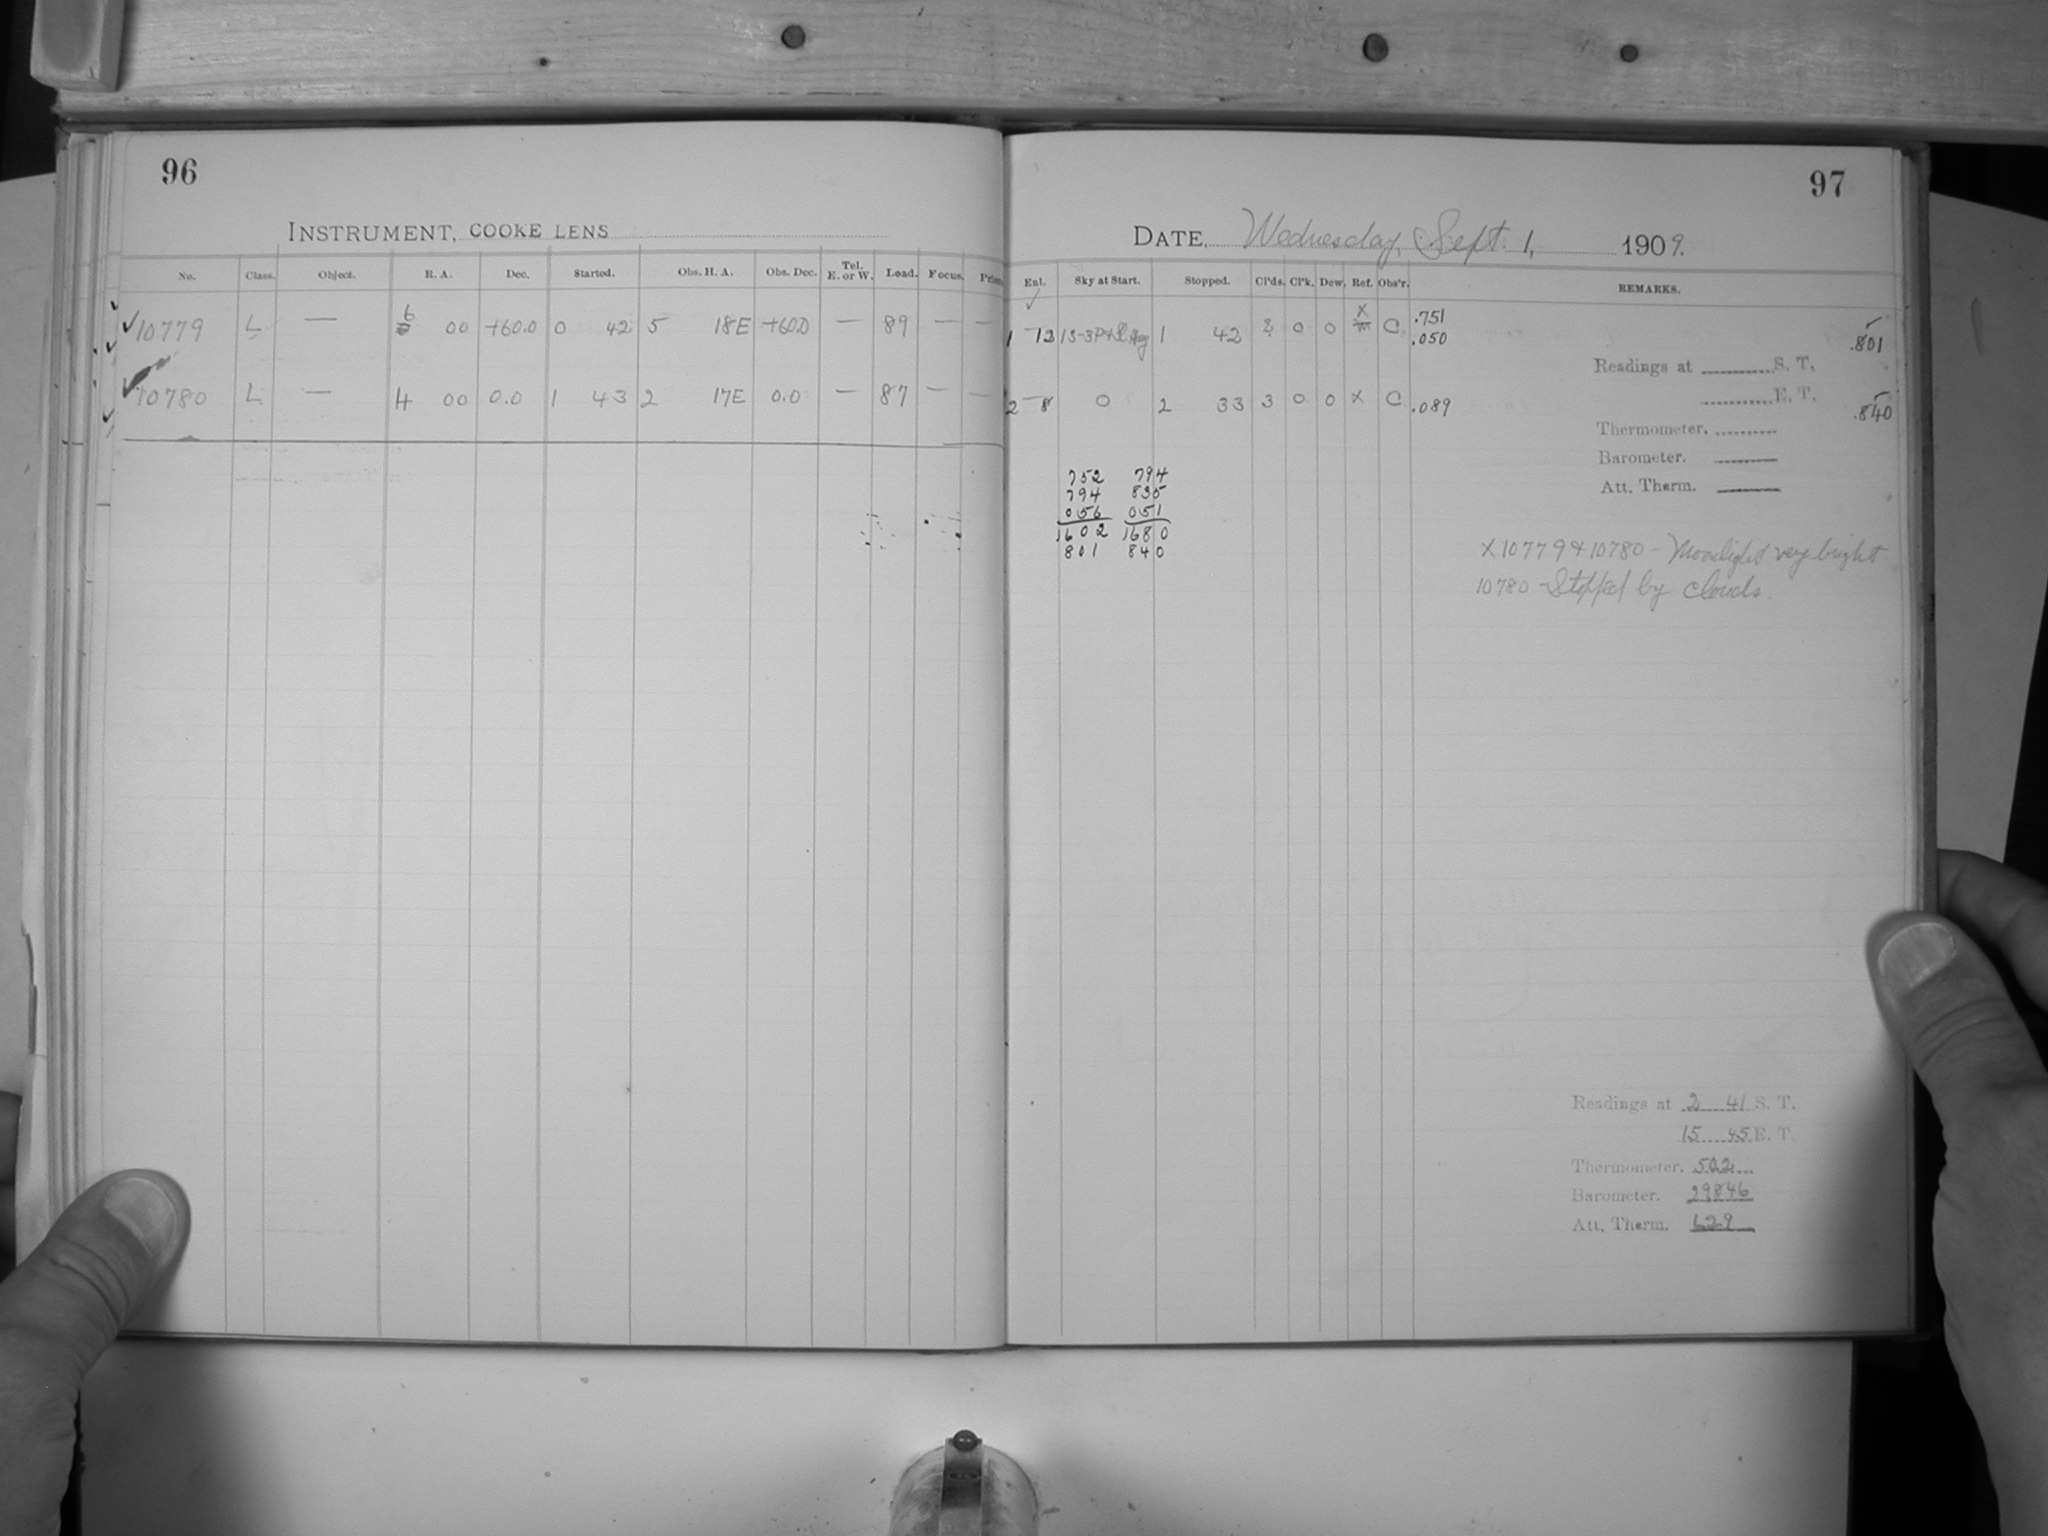 96
INSTRUMENT, COOKE LENS
No. Class. Object. R. A. Dec. Started. Obs. H. A. Obs. Dec. Tel. E. or W. Lead. Focus. Prism
10779 L — 6 00 +60.0 0 42 5 18E +60.0 — 89 — —
10780 L — 4 00 0.0 1 43 2 17E 0.0 — 87 — —
97
DATE, Wednesday, Sept. 1, 1909.
Ent. Sky at Start. Stopped. Cl'ds. Cl'k. Dew. Ref. Obs'r. REMARKS.
1 42 0 0 X C .751
.050 .801
Readings at S. T.
2 8 0 2 33 3 0 0 X C .089 .840
E. T.
Thermometer.
Barometer.
Att. Therm.
752 794
794 835
056 051
1602 1680
801 840
X10779 & 10780 - Moonlight very bright
10780 - Stopped by clouds.
Readings at 2 41 S. T.
15 45 E. T.
Thermometer. 50.2
Barometer. 29.846
Att. Therm. 62.9